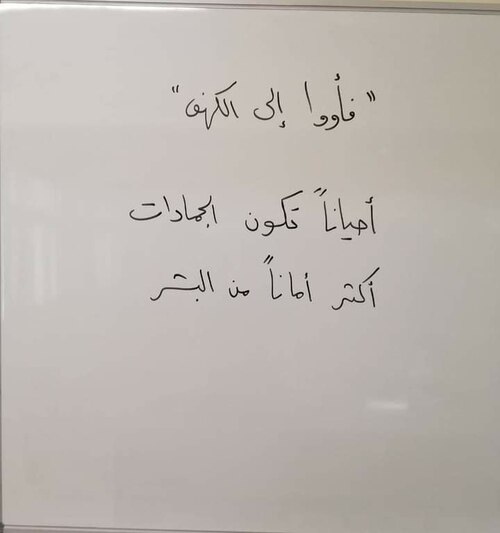 "فأووا إلى الكهف"
أحياناً تكون الجمادات
أكثر أماناً من البشر